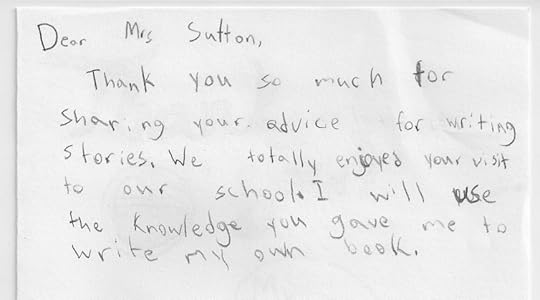 Dear Mrs Sutton,
Thank you so much for
sharing your advice for writing
stories. We totally enjoyed your visit
to our school. I will use
the knowledge you gave me to
write my own book.